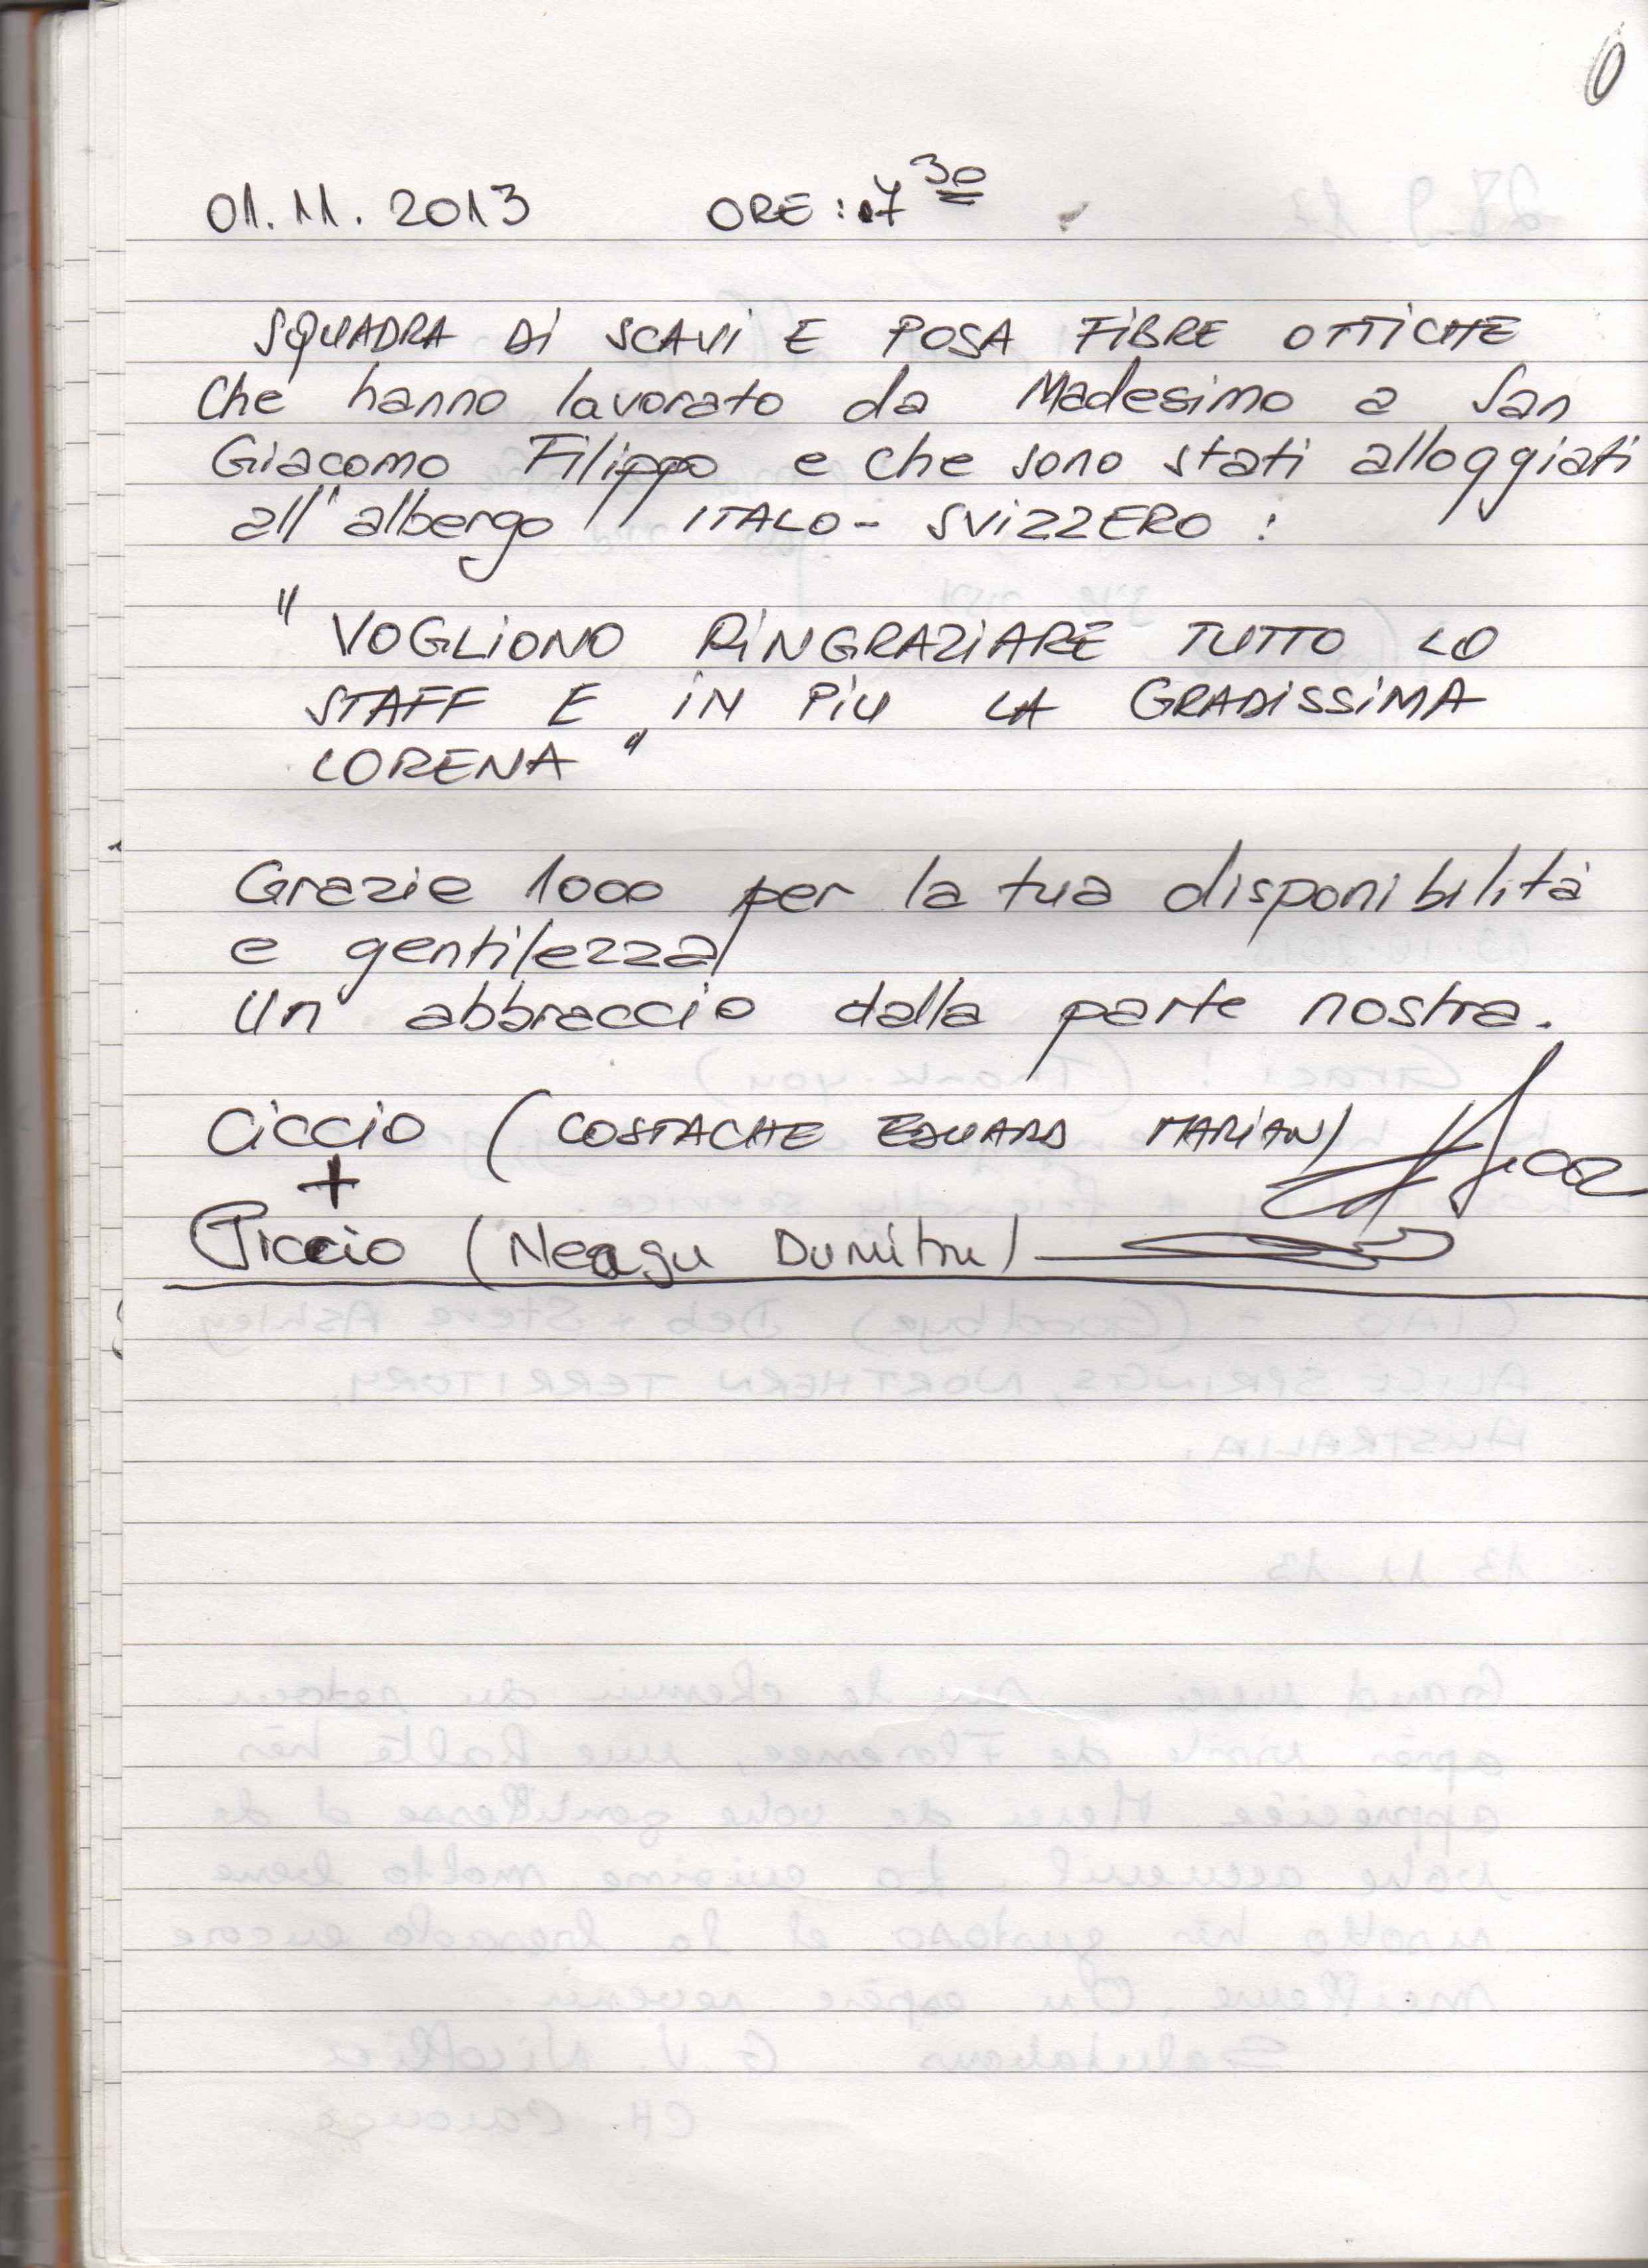 0
01.11.2013 ORE: 7 30
SQUADRA DI SCAVI E POSA FIBRE OTTICHE
Che hanno lavorato da Madesimo a San
Giacomo Filippo e che sono stati alloggiati
all'albergo ITALO-SVIZZERO:
"VOGLIONO RINGRAZIARE TUTTO LO
STAFF E IN PIU LA GRADISSIMA
LORENA"
Grazie 1000 per la tua disponibilità
e gentilezza
Un abbraccio dalla parte nostra.
Ciccio (COSTACHE EDUARD MARIAN)
+
Piccio (Neagu Dumitru)